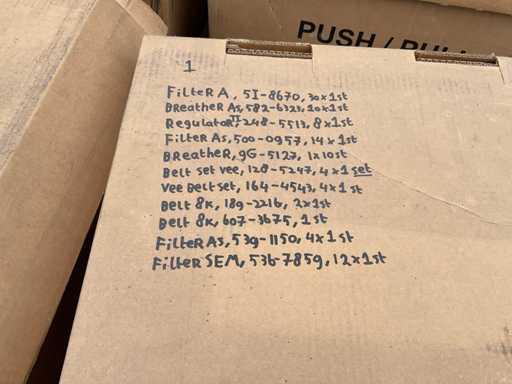 PUSH / PULL
1
FilteR A, 5I-8670, 30x1st
BReatheR As, 582-6323, 10x1st
RegulatoR T, 248-5513, 8x1st
FilteR As, 500-0957, 14x1st
BReatheR, 9G-5127, 1x10st
Belt set vee, 128-5247, 4x1 set
Vee Belt set, 164-4543, 4x1 st
Belt 8K, 189-2216, 2x1st
Belt 8K, 607-3675, 1 st
FilteR As, 539-1150, 4x1 st
FilteR SEM, 536-7859, 12x1st